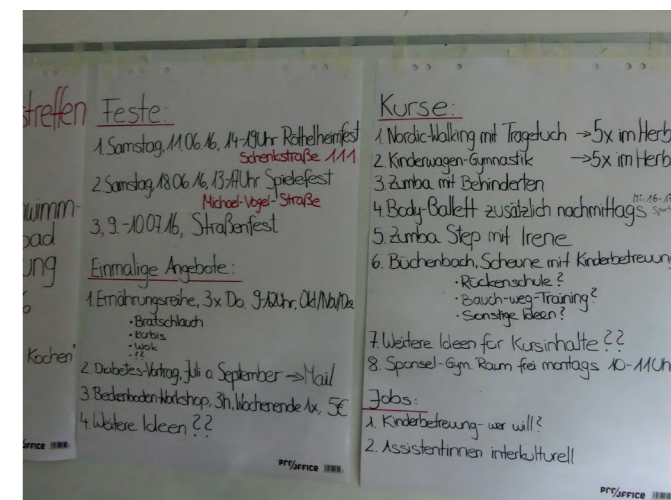 treffen
wimm-
bad
ung
Kochen"
Feste:
1. Samstag, 11.06.16, 14-19Uhr Röthelheimfest
Schenkstraße 111
2. Samstag, 18.06.16, 13-17Uhr Spielefest
Michael-Vogel-Straße
3, 9.-10.07.16, Straßenfest
Einmalige Angebote:
1. Ernährungsreihe, 3x Do. 9-12Uhr, Okt/Nov/Dez
• Bratschlauch
• Kürbis
• Wok
• ??
2. Diabetes-Vortrag, Juli o. September → Mail
3. Beckenboden-Workshop, 3h, Wochenende 1x, 5€
4. Weitere Ideen ??
pro/OFFICE
Kurse:
1. Nordic-Walking mit Tragetuch → 5x im Herb
2. Kinderwagen-Gymnastik → 5x im Herb
3. Zumba mit Behinderten
4. Body-Ballett zusätzlich nachmittags
5. Zumba Step mit Irene
6. Büchenbach, Scheune mit Kinderbetreuung
• Rückenschule?
• Bauch-weg-Training?
• Sonstige Ideen?
7. Weitere Ideen für Kursinhalte ??
8. Sponsel-Gym. Raum frei montags 10-11Uh
Jobs:
1. Kinderbetreuung - wer will?
2. Assistentinnen interkulturell
pro/OFFICE